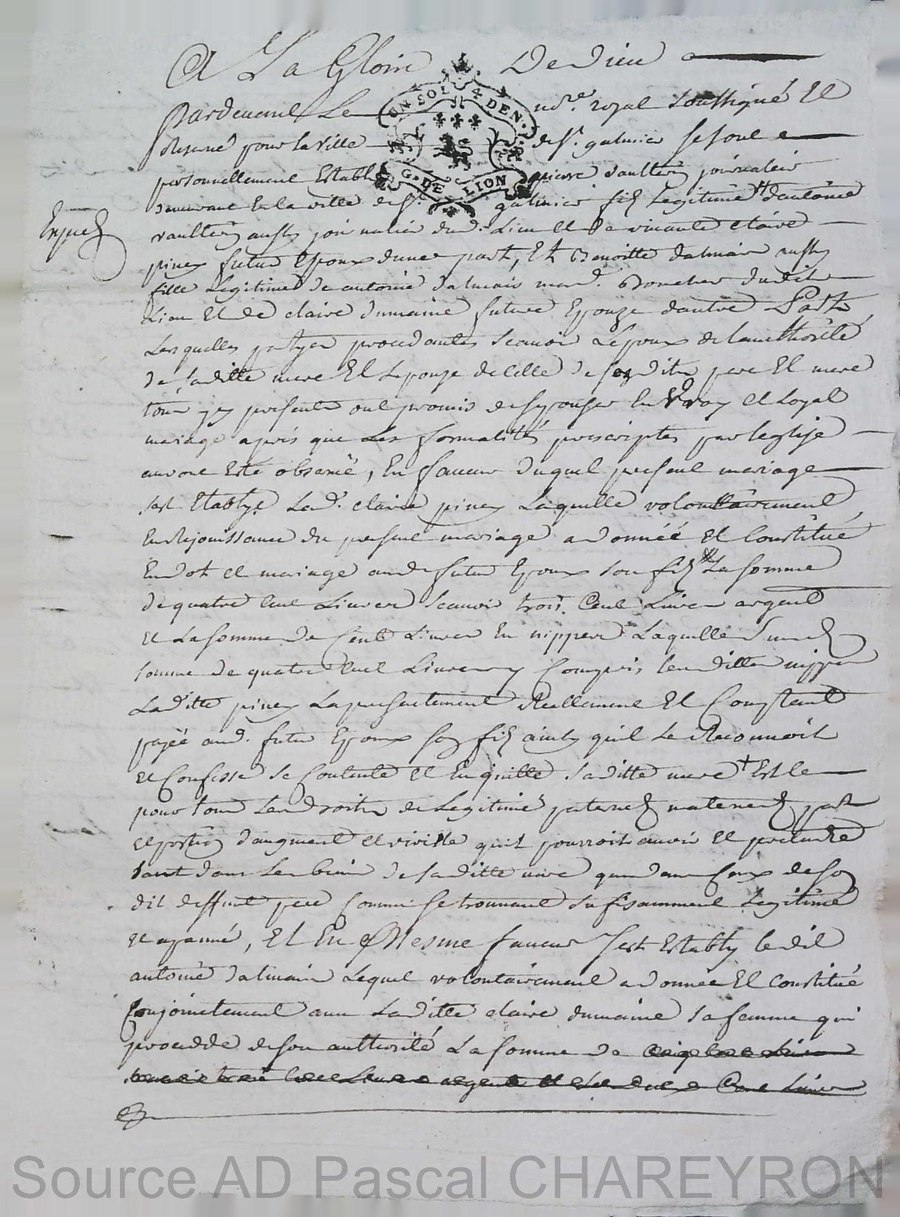 A La Gloire De Dieu
Pardevant Le no.re royal soussigné Et
Reservé pour la ville de St. galmier se sont
UN SOL 4 DEN.
G. DE LION
personnellement Establ pierre vaultier journalier
demeurant En la ville de St. galmier fils Legitime d'antoine
Vaultier aussy journalier dud. Lieu Et de vivante claire
piney futur Epoux d'une part, Et Benoitte dalmais aussy
fille Legitime de antoine dalmais mar.d Boucher dudit
Lieu Et de claire dumaine future Epouze d'autre Part,
Lesquelles partyes procedantes scavoir L'epoux de L'authorité
de sa ditte mere Et L'epouze de celle de ses dits pere Et mere
tous jcy presents ont promis de s'epouser En Vray et Loyal
mariage apres que Les formalités prescriptes par L'eglise
auront Esté observé, En faveur duquel present mariage
s'est Etablye Lad. claire piney Laquelle volontairement
En Rejouissance du present mariage a donnée Et Constitué
En dot et mariage aud. futur Epoux son fils La somme
de quatre Cent Livres scavoir trois Cent Livres argent
et La somme de Cent Livres En nippes Laquelle susd.
somme de quatre Cent Livres y Compris lesdittes nippes
La ditte piney La presentement Reellement Et Comptent
payée aud. futur Epoux son fils ainsy qu'il Le Reconnoit
et Confesse se Contente Et En quitte sa ditte mere Et Ce
pour tous Les droits de Legitime paternels maternels part
et portion d'augment et virille qu'il pourroit avoir Et pretendre
tant dans Les biens de sa ditte mere que dans Ceux de son
dit deffunt pere Comme se trouvant sufisamment Legitimé
et apanné, Et En Mesme faveur s'est Establý ledit
antoine dalmais Lequel volontairement a donnée Et Constitué
Conjointement avec La ditte claire dumaine sa femme qui
procedde de son authorité La somme de
Source AD Pascal CHAREYRON